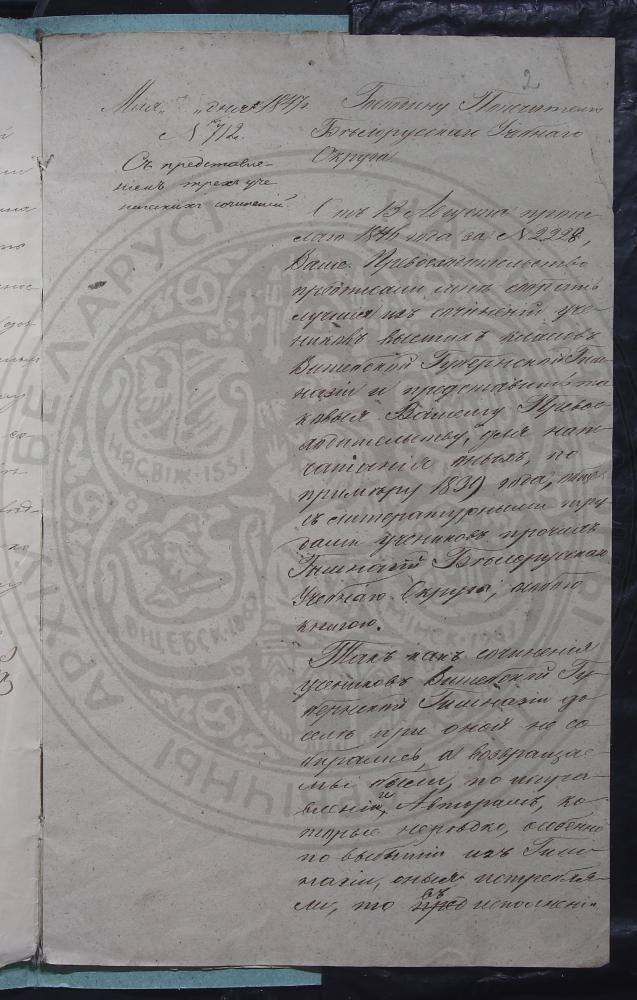 2
Мая " " дня 1847 г.
№ 712.
Съ представле-
ніемъ трехъ уче-
ническихъ сочиненій
Господину Попечителю
Бѣлорусскаго Учебнаго
Округа
Отъ 13 Августа прош-
лаго 1846 года за № 2228,
Ваше Превосходительство
предписали мнѣ собрать
лучшія изъ сочиненій уче-
никовъ высшихъ классовъ
Витебской Губернской Гим-
назіи и представить та-
ковыя Вашему Превос-
ходительству, для напе-
чатанія оныхъ, по
примѣру 1839 года,
съ литературными тру-
дами учениковъ прочихъ
Гимназій Бѣлорусскаго
Учебнаго Округа, особою
книгою.
Такъ какъ сочиненія
учениковъ Витебской Гу-
бернской Гимназіи до
селѣ при оной не со-
бирались, а возвращае-
мы были, по
Авторамъ, ко-
торые нерѣдко, особенно
по выбытіи изъ Гим-
назіи, оныя истребля-
ли, то въ исполненіи
БЕЛАРУСІ
НЯСВІЖ·155
ВІЦЕБСК·
МІНСК·